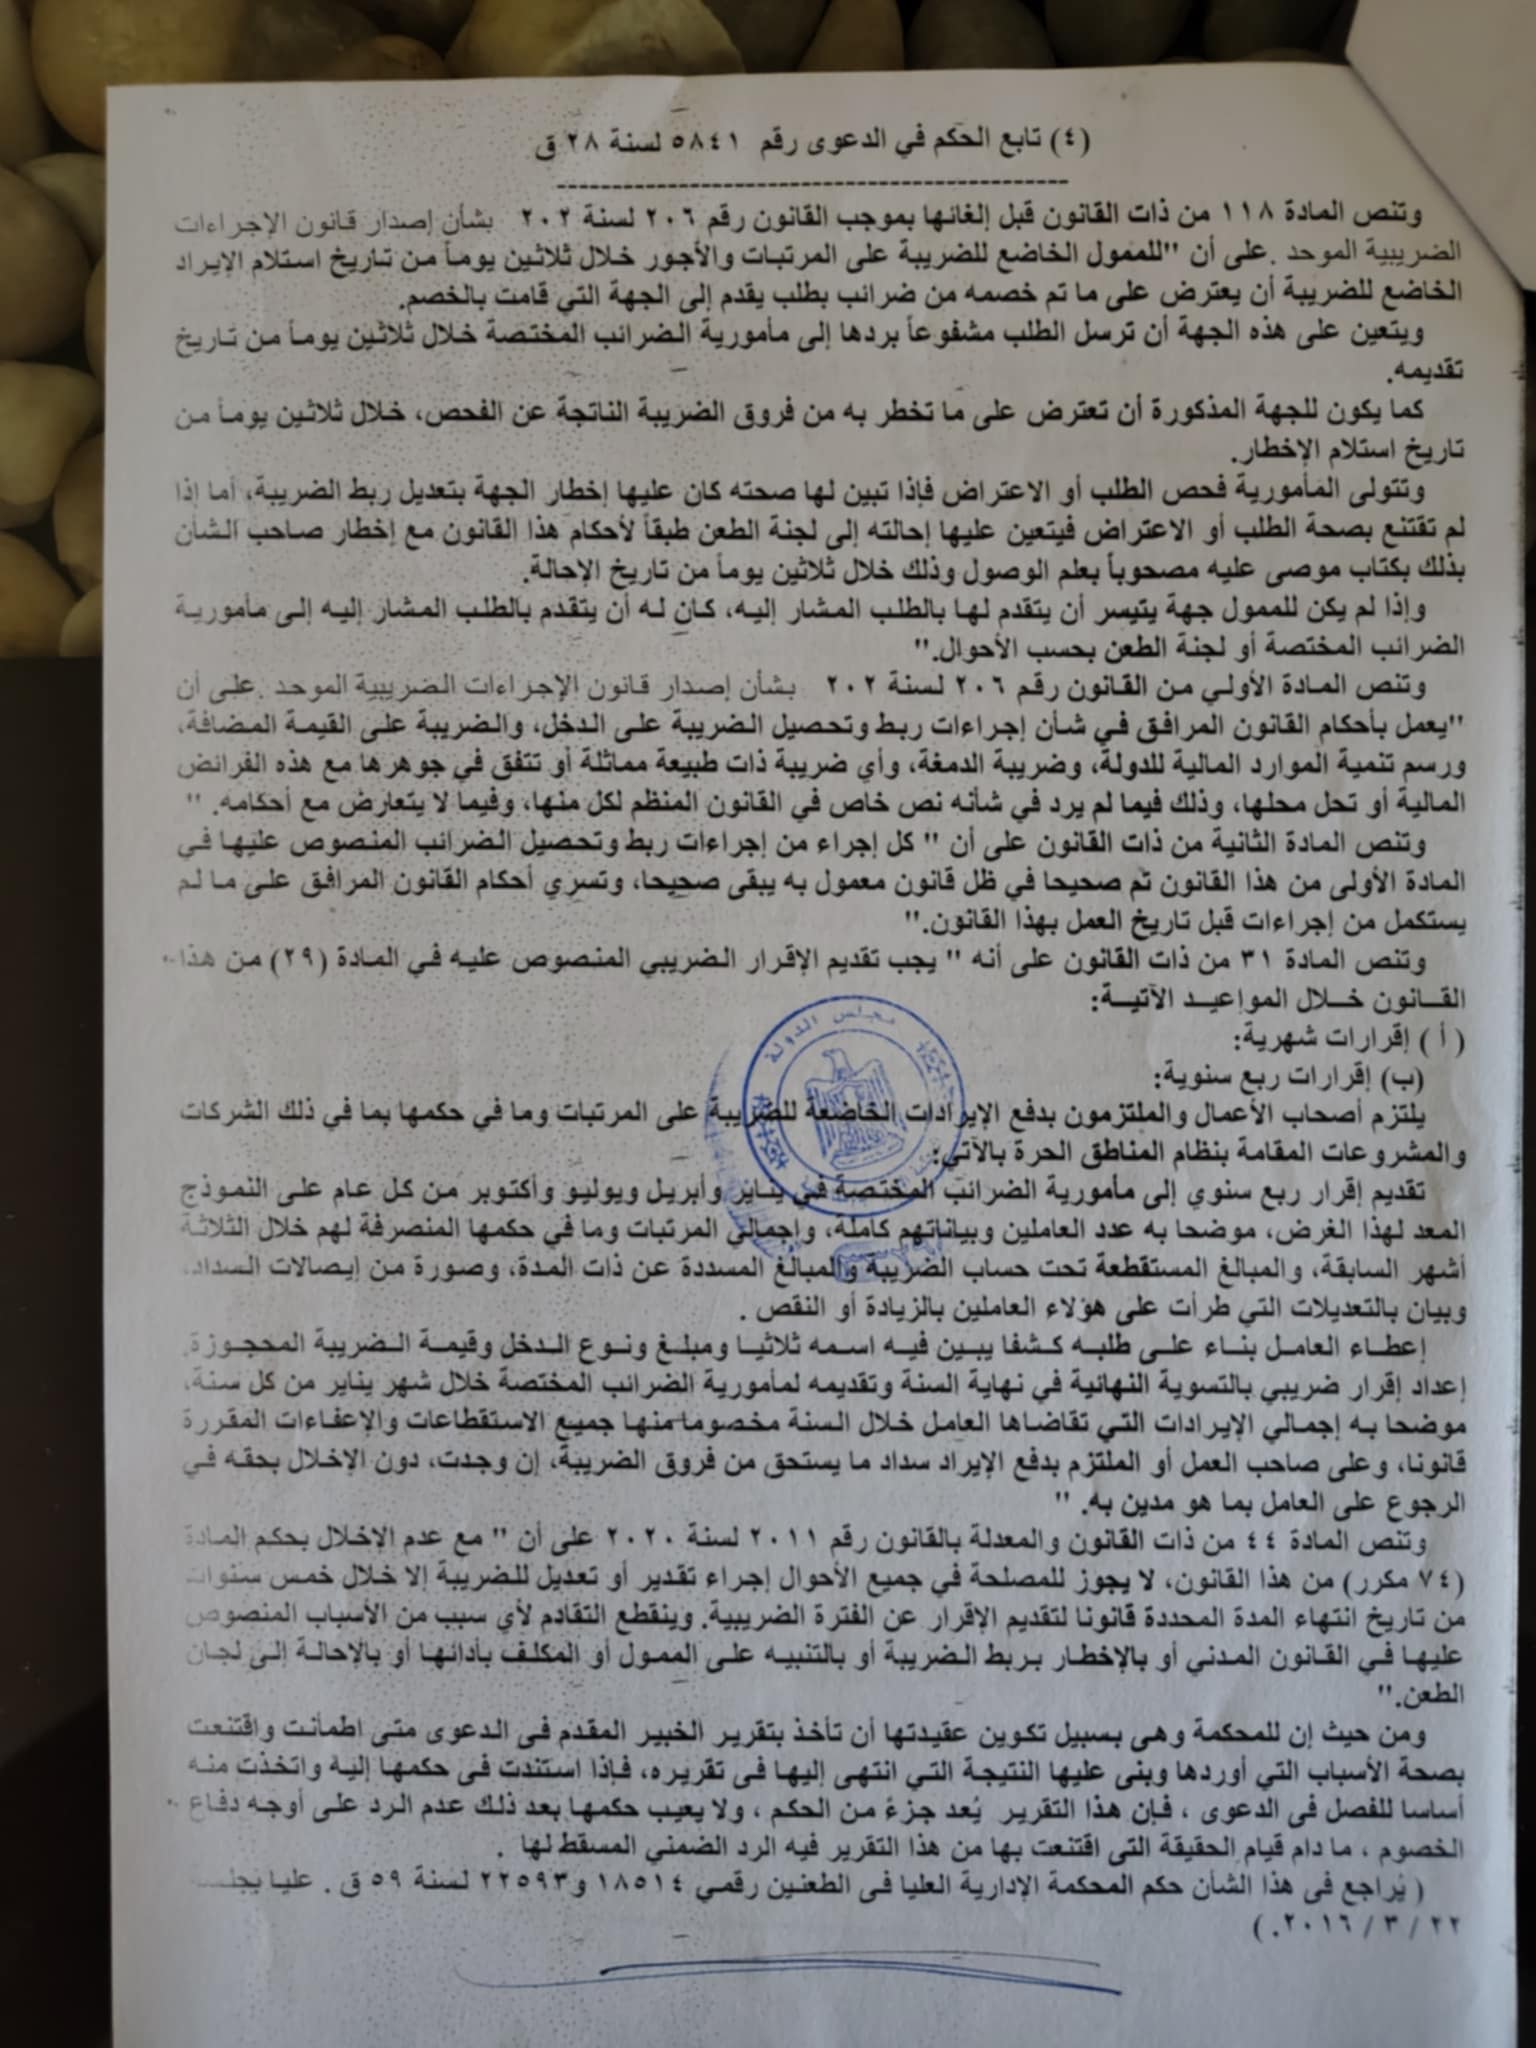 (٤) تابع الحكم في الدعوى رقم ٥٨٤١ لسنة ٢٨ ق
وتنص المادة ١١٨ من ذات القانون قبل إلغائها بموجب القانون رقم ٢٠٦ لسنة ٢٠٢ بشأن إصدار قانون الإجراءات
الضريبية الموحد .على أن "للممول الخاضع للضريبة على المرتبات والأجور خلال ثلاثين يوماً من تاريخ استلام الإيراد
الخاضع للضريبة أن يعترض على ما تم خصمه من ضرائب بطلب يقدم إلى الجهة التي قامت بالخصم.
ويتعين على هذه الجهة أن ترسل الطلب مشفوعاً بردها إلى مأمورية الضرائب المختصة خلال ثلاثين يوماً من تاريخ
تقديمه.
كما يكون للجهة المذكورة أن تعترض على ما تخطر به من فروق الضريبة الناتجة عن الفحص، خلال ثلاثين يوماً من
تاريخ استلام الإخطار.
وتتولى المأمورية فحص الطلب أو الاعتراض فإذا تبين لها صحته كان عليها إخطار الجهة بتعديل ربط الضريبة، أما إذا
لم تقتنع بصحة الطلب أو الاعتراض فيتعين عليها إحالته إلى لجنة الطعن طبقاً لأحكام هذا القانون مع إخطار صاحب الشأن
بذلك بكتاب موصى عليه مصحوباً بعلم الوصول وذلك خلال ثلاثين يوماً من تاريخ الإحالة.
وإذا لم يكن للممول جهة يتيسر أن يتقدم لها بالطلب المشار إليه، كان له أن يتقدم بالطلب المشار إليه إلى مأمورية
الضرائب المختصة أو لجنة الطعن بحسب الأحوال."
وتنص المادة الأولي من القانون رقم ٢٠٦ لسنة ٢٠٢ بشأن إصدار قانون الإجراءات الضريبية الموحد .على أن
"يعمل بأحكام القانون المرافق في شأن إجراءات ربط وتحصيل الضريبة على الدخل، والضريبة على القيمة المضافة،
ورسم تنمية الموارد المالية للدولة، وضريبة الدمغة، وأي ضريبة ذات طبيعة مماثلة أو تتفق في جوهرها مع هذه الفرائض
المالية أو تحل محلها، وذلك فيما لم يرد في شأنه نص خاص في القانون المنظم لكل منها، وفيما لا يتعارض مع أحكامه. "
وتنص المادة الثانية من ذات القانون على أن " كل إجراء من إجراءات ربط وتحصيل الضرائب المنصوص عليها في
المادة الأولى من هذا القانون تم صحيحا في ظل قانون معمول به يبقى صحيحا، وتسري أحكام القانون المرافق على ما لم
يستكمل من إجراءات قبل تاريخ العمل بهذا القانون."
وتنص المادة ٣١ من ذات القانون على أنه " يجب تقديم الإقرار الضريبي المنصوص عليه في المادة (٢٩) من هذا
القانون خلال المواعيد الآتية:
( أ ) إقرارات شهرية:
(ب) إقرارات ربع سنوية:
يلتزم أصحاب الأعمال والملتزمون بدفع الإيرادات الخاضعة للضريبة على المرتبات وما في حكمها بما في ذلك الشركات
والمشروعات المقامة بنظام المناطق الحرة بالآتي:
تقديم إقرار ربع سنوي إلى مأمورية الضرائب المختصة في يناير وأبريل ويوليو وأكتوبر من كل عام على النموذج
المعد لهذا الغرض، موضحا به عدد العاملين وبياناتهم كاملة، وإجمالي المرتبات وما في حكمها المنصرفة لهم خلال الثلاثة
أشهر السابقة، والمبالغ المستقطعة تحت حساب الضريبة والمبالغ المسددة عن ذات المدة، وصورة من إيصالات السداد،
وبيان بالتعديلات التي طرأت على هؤلاء العاملين بالزيادة أو النقص .
إعطاء العامل بناء على طلبه كشفا يبين فيه اسمه ثلاثيا ومبلغ ونوع الدخل وقيمة الضريبة المحجوزة.
إعداد إقرار ضريبي بالتسوية النهائية في نهاية السنة وتقديمه لمأمورية الضرائب المختصة خلال شهر يناير من كل سنة،
موضحا به إجمالي الإيرادات التي تقاضاها العامل خلال السنة مخصوما منها جميع الاستقطاعات والإعفاءات المقررة
قانونا، وعلى صاحب العمل أو الملتزم بدفع الإيراد سداد ما يستحق من فروق الضريبة، إن وجدت، دون الإخلال بحقه في
الرجوع على العامل بما هو مدين به. "
وتنص المادة ٤٤ من ذات القانون والمعدلة بالقانون رقم ٢٠١١ لسنة ٢٠٢٠ على أن " مع عدم الإخلال بحكم المادة
(٧٤ مكرر) من هذا القانون، لا يجوز للمصلحة في جميع الأحوال إجراء تقدير أو تعديل للضريبة إلا خلال خمس سنوات
من تاريخ انتهاء المدة المحددة قانونا لتقديم الإقرار عن الفترة الضريبية. وينقطع التقادم لأي سبب من الأسباب المنصوص
عليها في القانون المدني أو بالإخطار بربط الضريبة أو بالتنبيه على الممول أو المكلف بأدائها أو بالإحالة إلى لجان
الطعن."
ومن حيث إن للمحكمة وهى بسبيل تكوين عقيدتها أن تأخذ بتقرير الخبير المقدم فى الدعوى متى اطمأنت واقتنعت
بصحة الأسباب التي أوردها وبنى عليها النتيجة التي انتهى إليها فى تقريره، فإذا استندت فى حكمها إليه واتخذت منه
أساسا للفصل فى الدعوى ، فإن هذا التقرير يُعد جزءً من الحكم ، ولا يعيب حكمها بعد ذلك عدم الرد على أوجه دفاع
الخصوم ، ما دام قيام الحقيقة التى اقتنعت بها من هذا التقرير فيه الرد الضمني المسقط لها .
( يُراجع فى هذا الشأن حكم المحكمة الإدارية العليا فى الطعنين رقمي ١٨٥١٤ و٢٢٥٩٣ لسنة ٥٩ ق . عليا بجلسة
٢٢ / ٣ / ٢٠١٦. )
مجلس الدولة